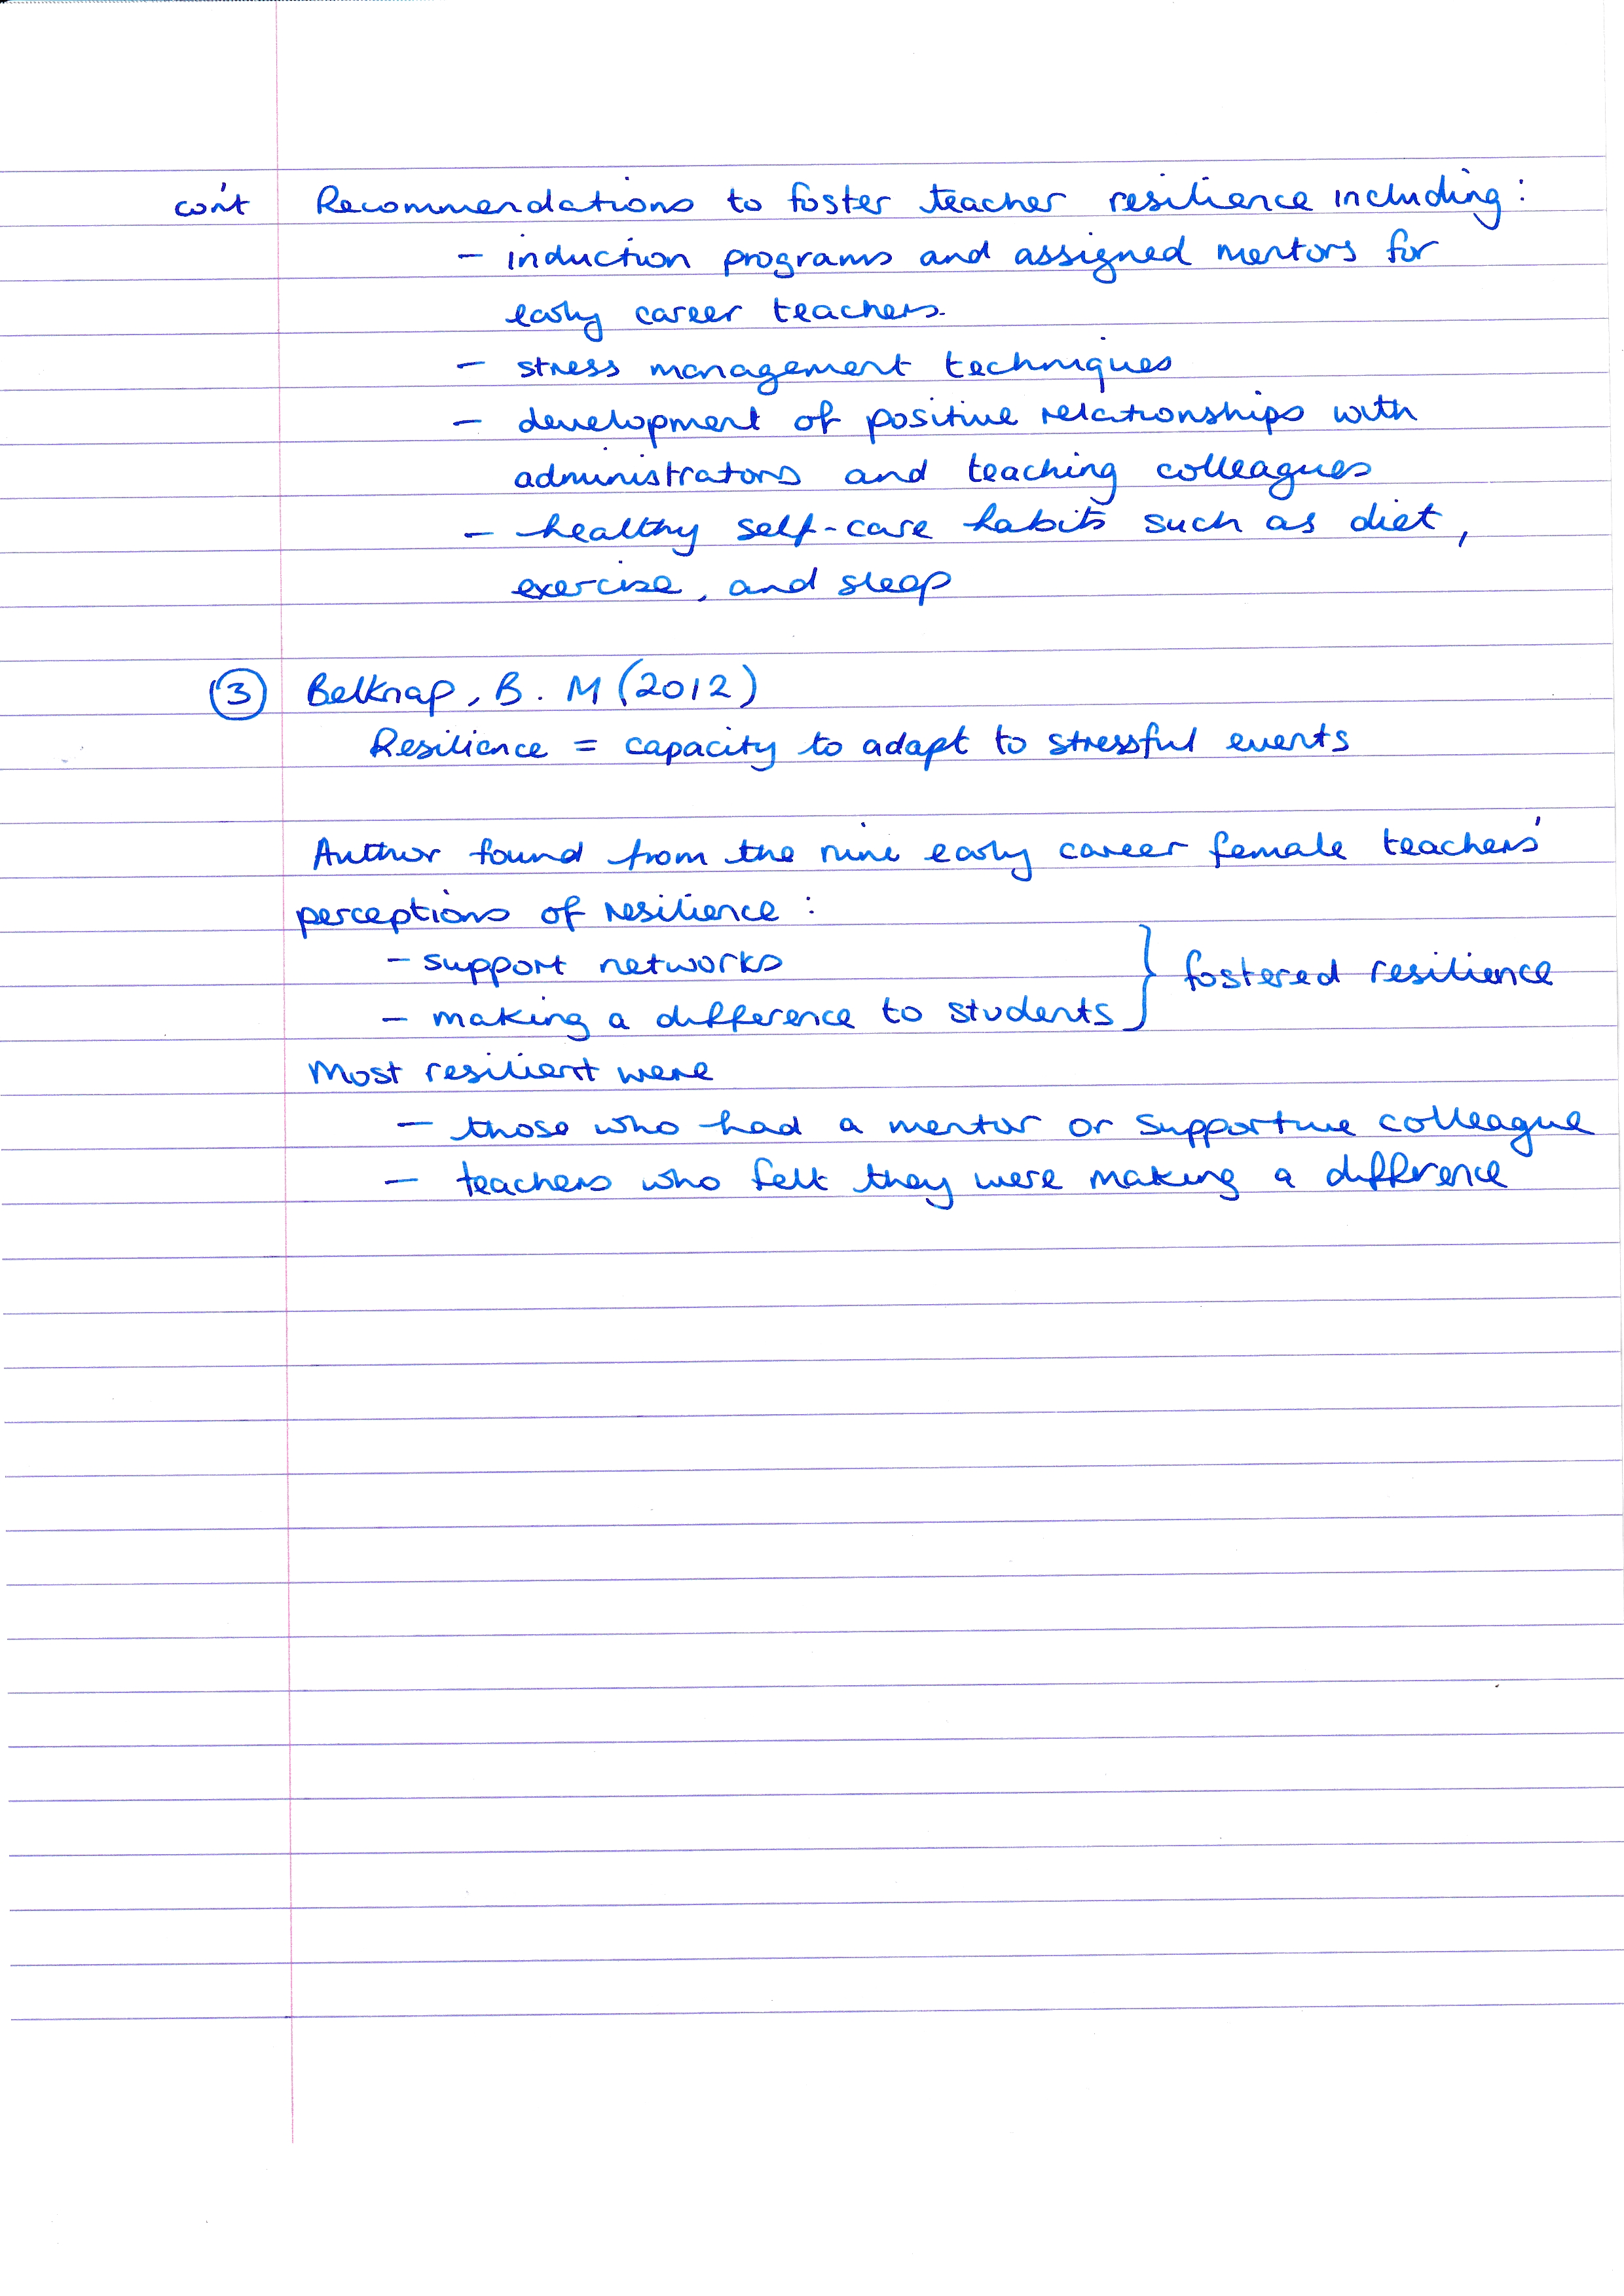 con't Recommendations to foster teacher resilience including:
- induction programs and assigned mentors for
early career teachers.
- stress management techniques
- development of positive relationships with
administrators and teaching colleagues
- healthy self-care habits such as diet,
exercise, and sleep
3 Belknap, B. M (2012)
Resilience = capacity to adapt to stressful events
Author found from the nine early career female teachers'
perceptions of resilience:
- support networks
- making a difference to students } fostered resilience
Most resilient were
- those who had a mentor or supportive colleague
- teachers who felt they were making a difference